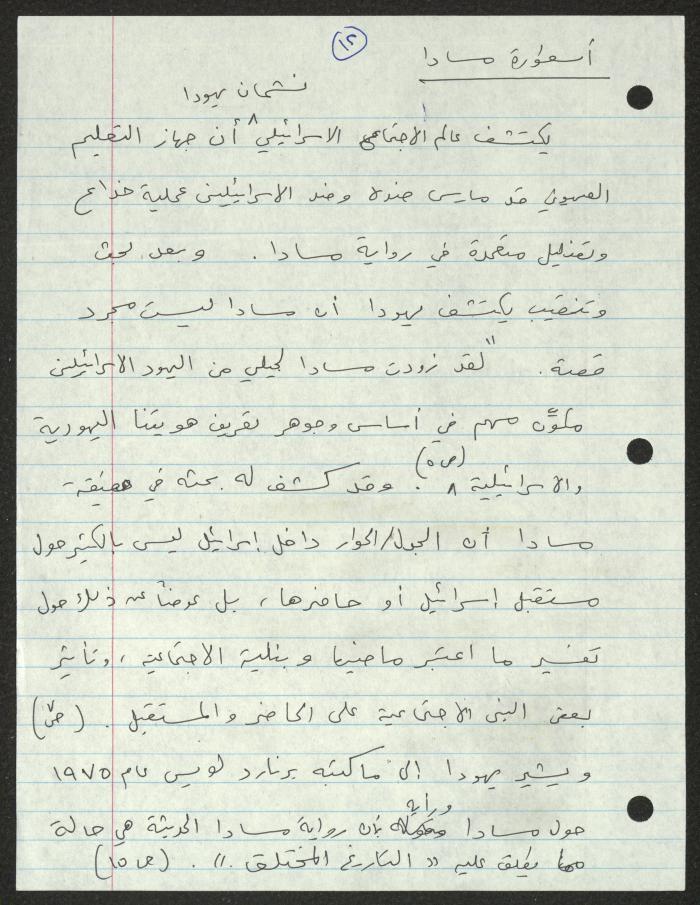 ١٢
أسطورة مسادا
نشمان يهودا
يكتشف عالم الاجتماعي الاسرائيلي ٨ أن جهاز التعليم
الصهيوني قد مارس ضده وضد الاسرائيليين عملية خداع
وتضليل متعمدة في رواية مسادا. وبعد بحث
وتنقيب يكتشف يهودا أن مسادا ليست مجرد
قصة. "لقد زودت مسادا لجيلي من اليهود الاسرائيليين
مكوّن مهم في أساس وجوهر تعريف هويتنا اليهودية
والاسرائيلية ٨ (ص٥). وقد كشف له بحثه في حقيقة
مسادا أن الجدل/الحوار داخل إسرائيل ليس بالكثير حول
مستقبل إسرائيل أو حاضرها، بل عوضاً عن ذلك حول
تفسير ما اعتبر ماضيا وبنية الاجتماعية، وتأثير
بعض البنى الاجتماعية على الحاضر والمستقبل. (ص٧)
ويشير يهودا إلى ما كتبه برنارد لويس عام ١٩٧٥
حول مسادا ورأيه بأن رواية مسادا الحديثة هي حالة
مما يطلق عليه "التاريخ المختلق.". (ص١٥)